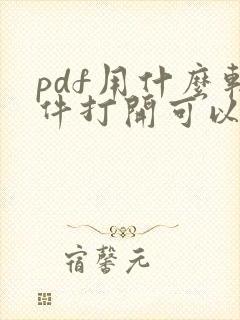 pdf用什麼軟
件打開可以
宿馨元